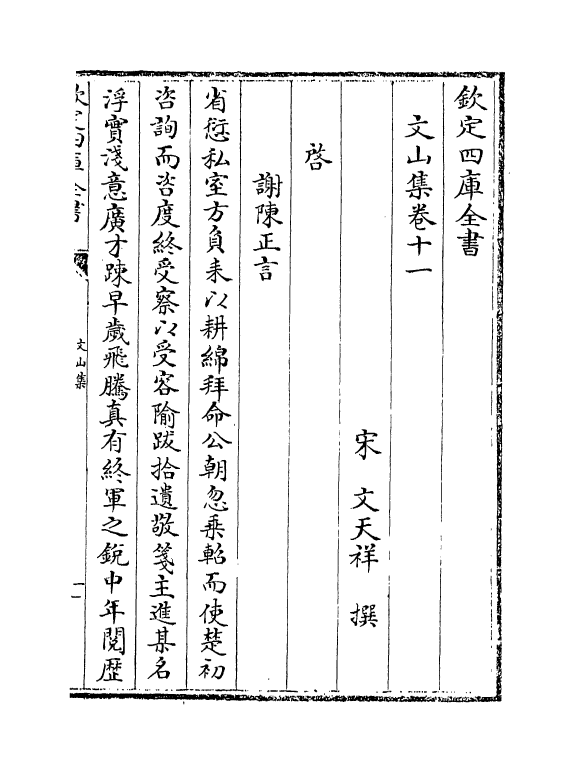 欽定四庫全書
文山集卷十一
宋 文天祥 撰
啓
謝陳正言
省愆私室方負耒以耕綿拜命公朝忽乘軺而使楚初
咨詢而咨度終受察以受容隃跋拾遺敬箋主進某名
浮實淺意廣才踈早歲飛騰真有終軍之銳中年閱歷
欽定四庫全書
文山集
一